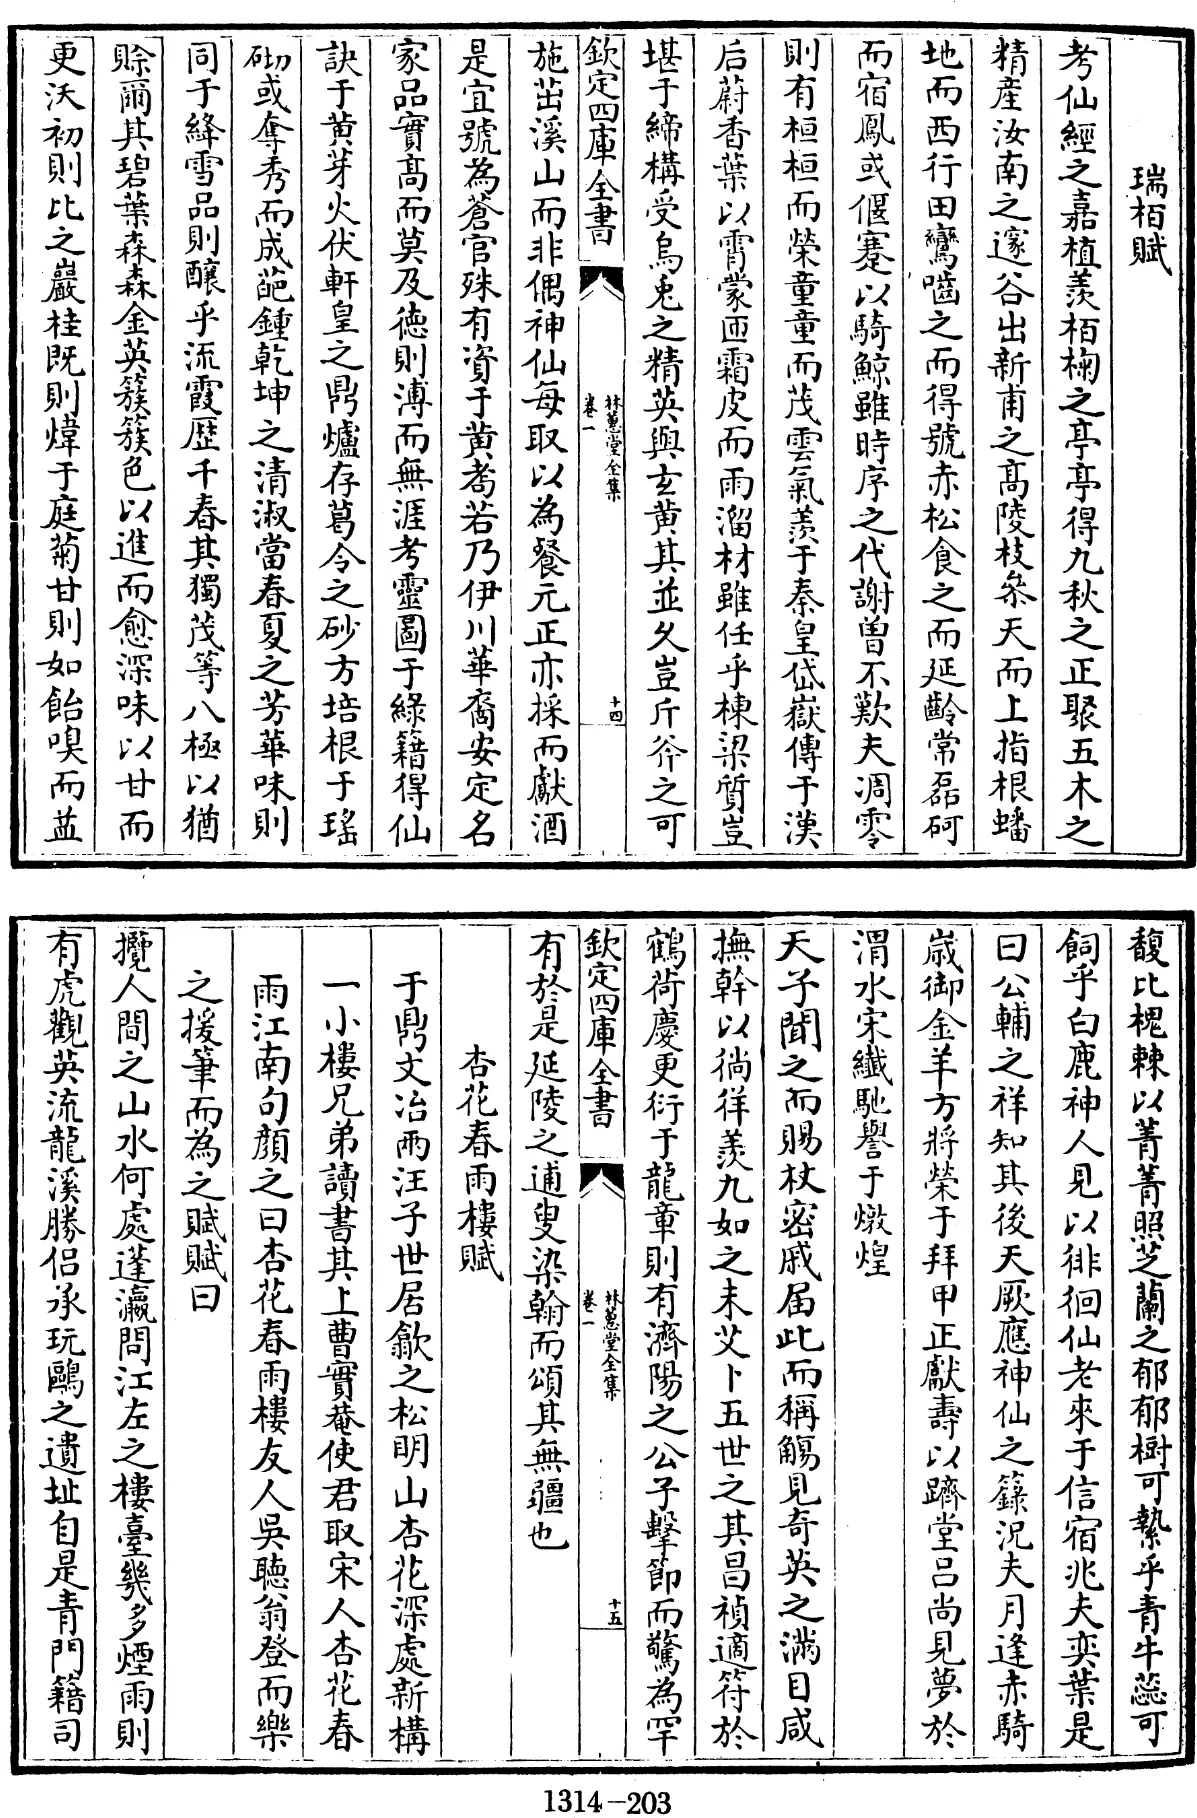 瑞栢賦
考仙經之嘉植羨栢椈之亭亭得九秋之正聚五木之
精産汝南之邃谷出新甫之髙陵枝叅天而上指根蟠
地而西行田鸞嚙之而得號赤松食之而延齡常磊砢
而宿鳳或偃蹇以騎鯨雖時序之代謝曽不歎夫凋零
則有桓桓而榮童童而茂雲氣羨于秦皇岱嶽傳于漢
后蔚香葉以霄蒙匝霜皮而雨溜材雖任乎棟梁質豈
堪于締構受烏兎之精英與玄黄其並久豈斤斧之可
欽定四庫全書
林蕙堂全集
卷一
十四
施茁溪山而非偶神仙每取以為餐元正亦採而獻酒
是宜號為蒼官殊有資于黄耈若乃伊川華裔安定名
家品實髙而莫及德則溥而無涯考靈圖于緑籍得仙
訣于黄芽火伏軒皇之鼎爐存葛令之砂方培根于瑤
砌或奪秀而成葩鍾乾坤之清淑當春夏之芳華味則
同于絳雪品則釀乎流霞歴千春其獨茂等八極以猶
賖爾其碧葉森森金英簇簇色以進而愈深味以甘而
更沃初則比之巖桂既則煒于庭菊甘則如飴嗅而益
馥比槐棘以菁菁照芝蘭之郁郁樹可縶乎青牛蕊可
飼乎白鹿神人見以徘徊仙老來于信宿兆夫奕葉是
曰公輔之祥知其後天厥應神仙之籙況夫月逢赤騎
歲御金羊方將榮于拜甲正獻壽以躋堂吕尚見夢於
渭水宋纖馳譽于燉煌
天子聞之而賜杖密戚届此而稱觴見奇英之滿目咸
撫幹以徜徉羨九如之未艾卜五世之其昌禎適符於
鶴荷慶更衍于龍章則有濟陽之公子擊節而驚為罕
欽定四庫全書
林蕙堂全集
卷一
十五
有於是延陵之逋叟染翰而頌其無疆也
杏花春雨樓賦
于鼎文冶兩汪子世居歙之松明山杏花深處新構
一小樓兄弟讀書其上曹實菴使君取宋人杏花春
雨江南句顔之曰杏花春雨樓友人吳聽翁登而樂
之援筆而為之賦賦曰
攬人間之山水何處蓬瀛問江左之樓臺幾多煙雨則
有虎觀英流龍溪勝侣承玩鷗之遺址自是青門籍司
1314-203